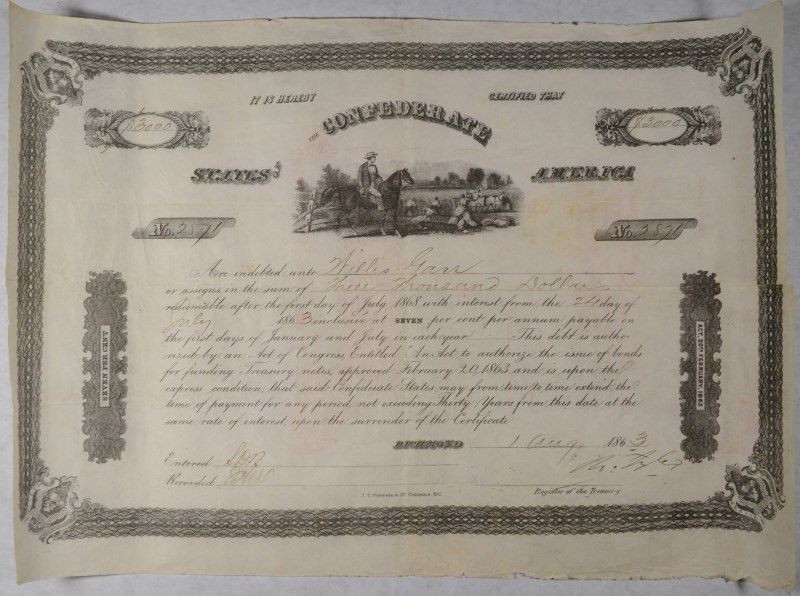 IT IS HEREBY CERTIFIED THAT
$3000 $3000
THE CONFEDERATE
STATES of AMERICA
No. 2871 No. 2871
Are indebted unto Willis Garr
or assigns in the sum of Three Thousand Dollars
redeemable after the first day of July 1868 with interest from the 24 day of
July 1863 inclusive at SEVEN per cent per annum payable on
the first days of January and July in each year. This debt is autho-
rized by an Act of Congress, Entitled "An Act to authorize the issue of bonds
for funding Treasury notes, approved February 20, 1863 and is upon the
express condition, that said Confederate States may from time to time extend the
time of payment for any period, not exceeding Thirty Years from this date at the
same rate of interest, upon the surrender of the Certificate
SEVEN PER CENT
ACT 20TH FEBRUARY, 1863
RICHMOND 1 Aug 1863
Entered
Recorded
Register of the Treasury